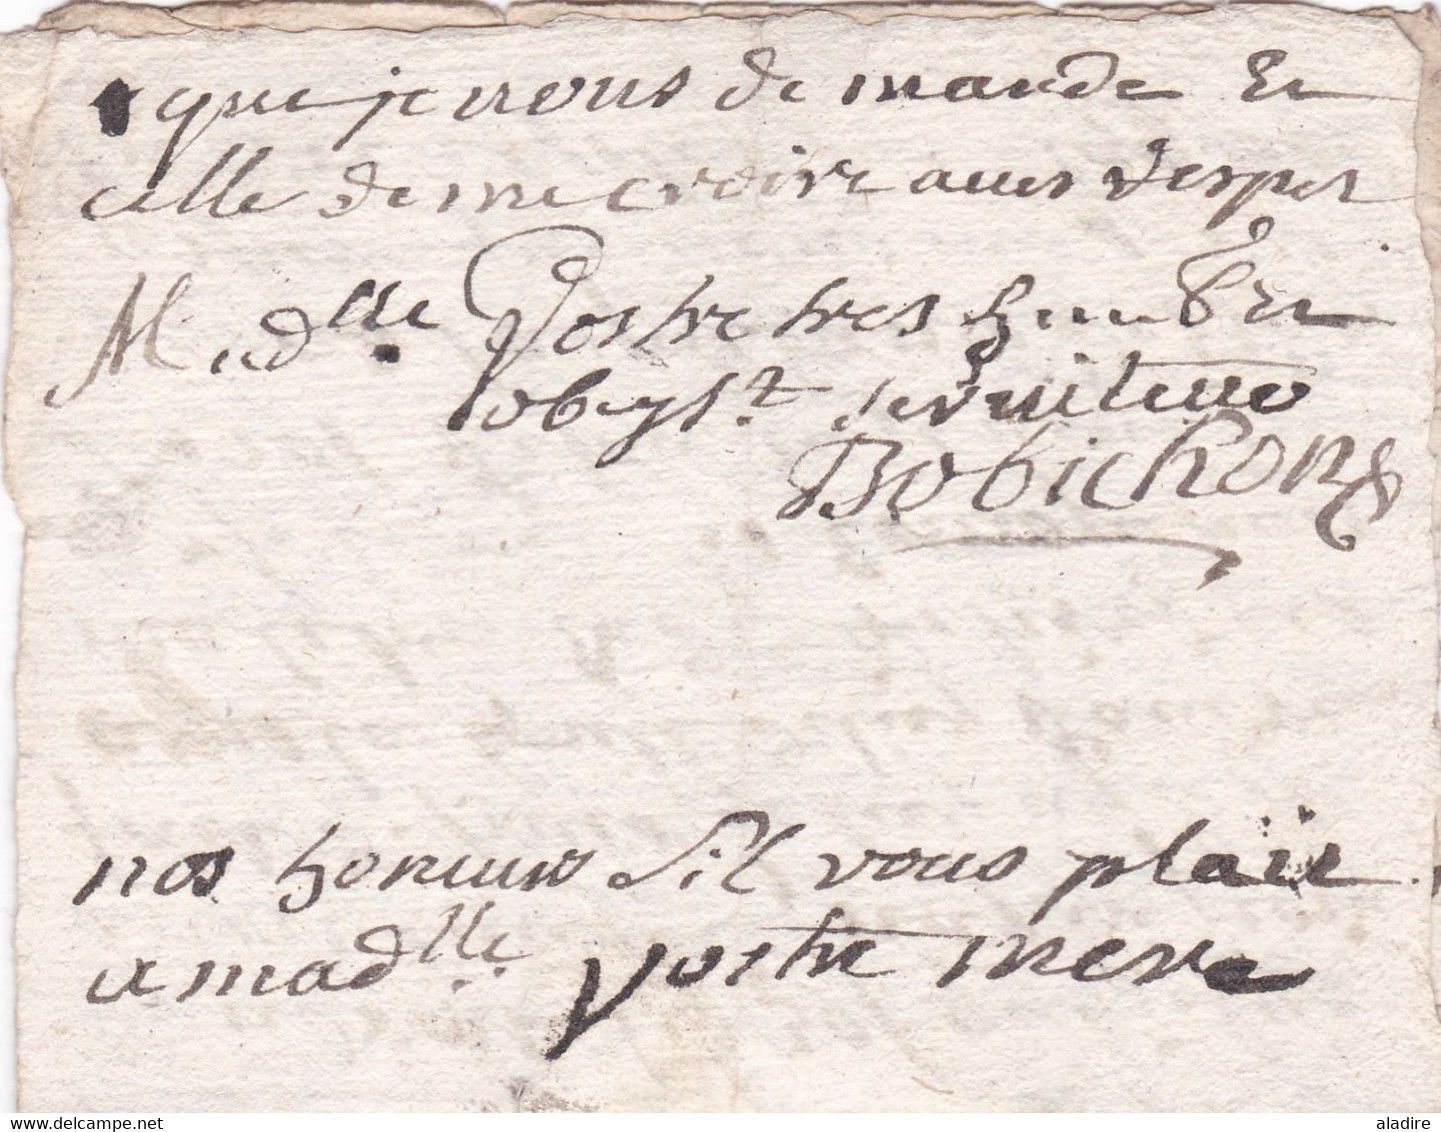 que je vous demande Et
celle de me croire avec respet
Madlle Vostre tres humble Et
obeyst. serviteur
Bobichon
nos honneurs sil vous plait
a madlle vostre mere
aladire